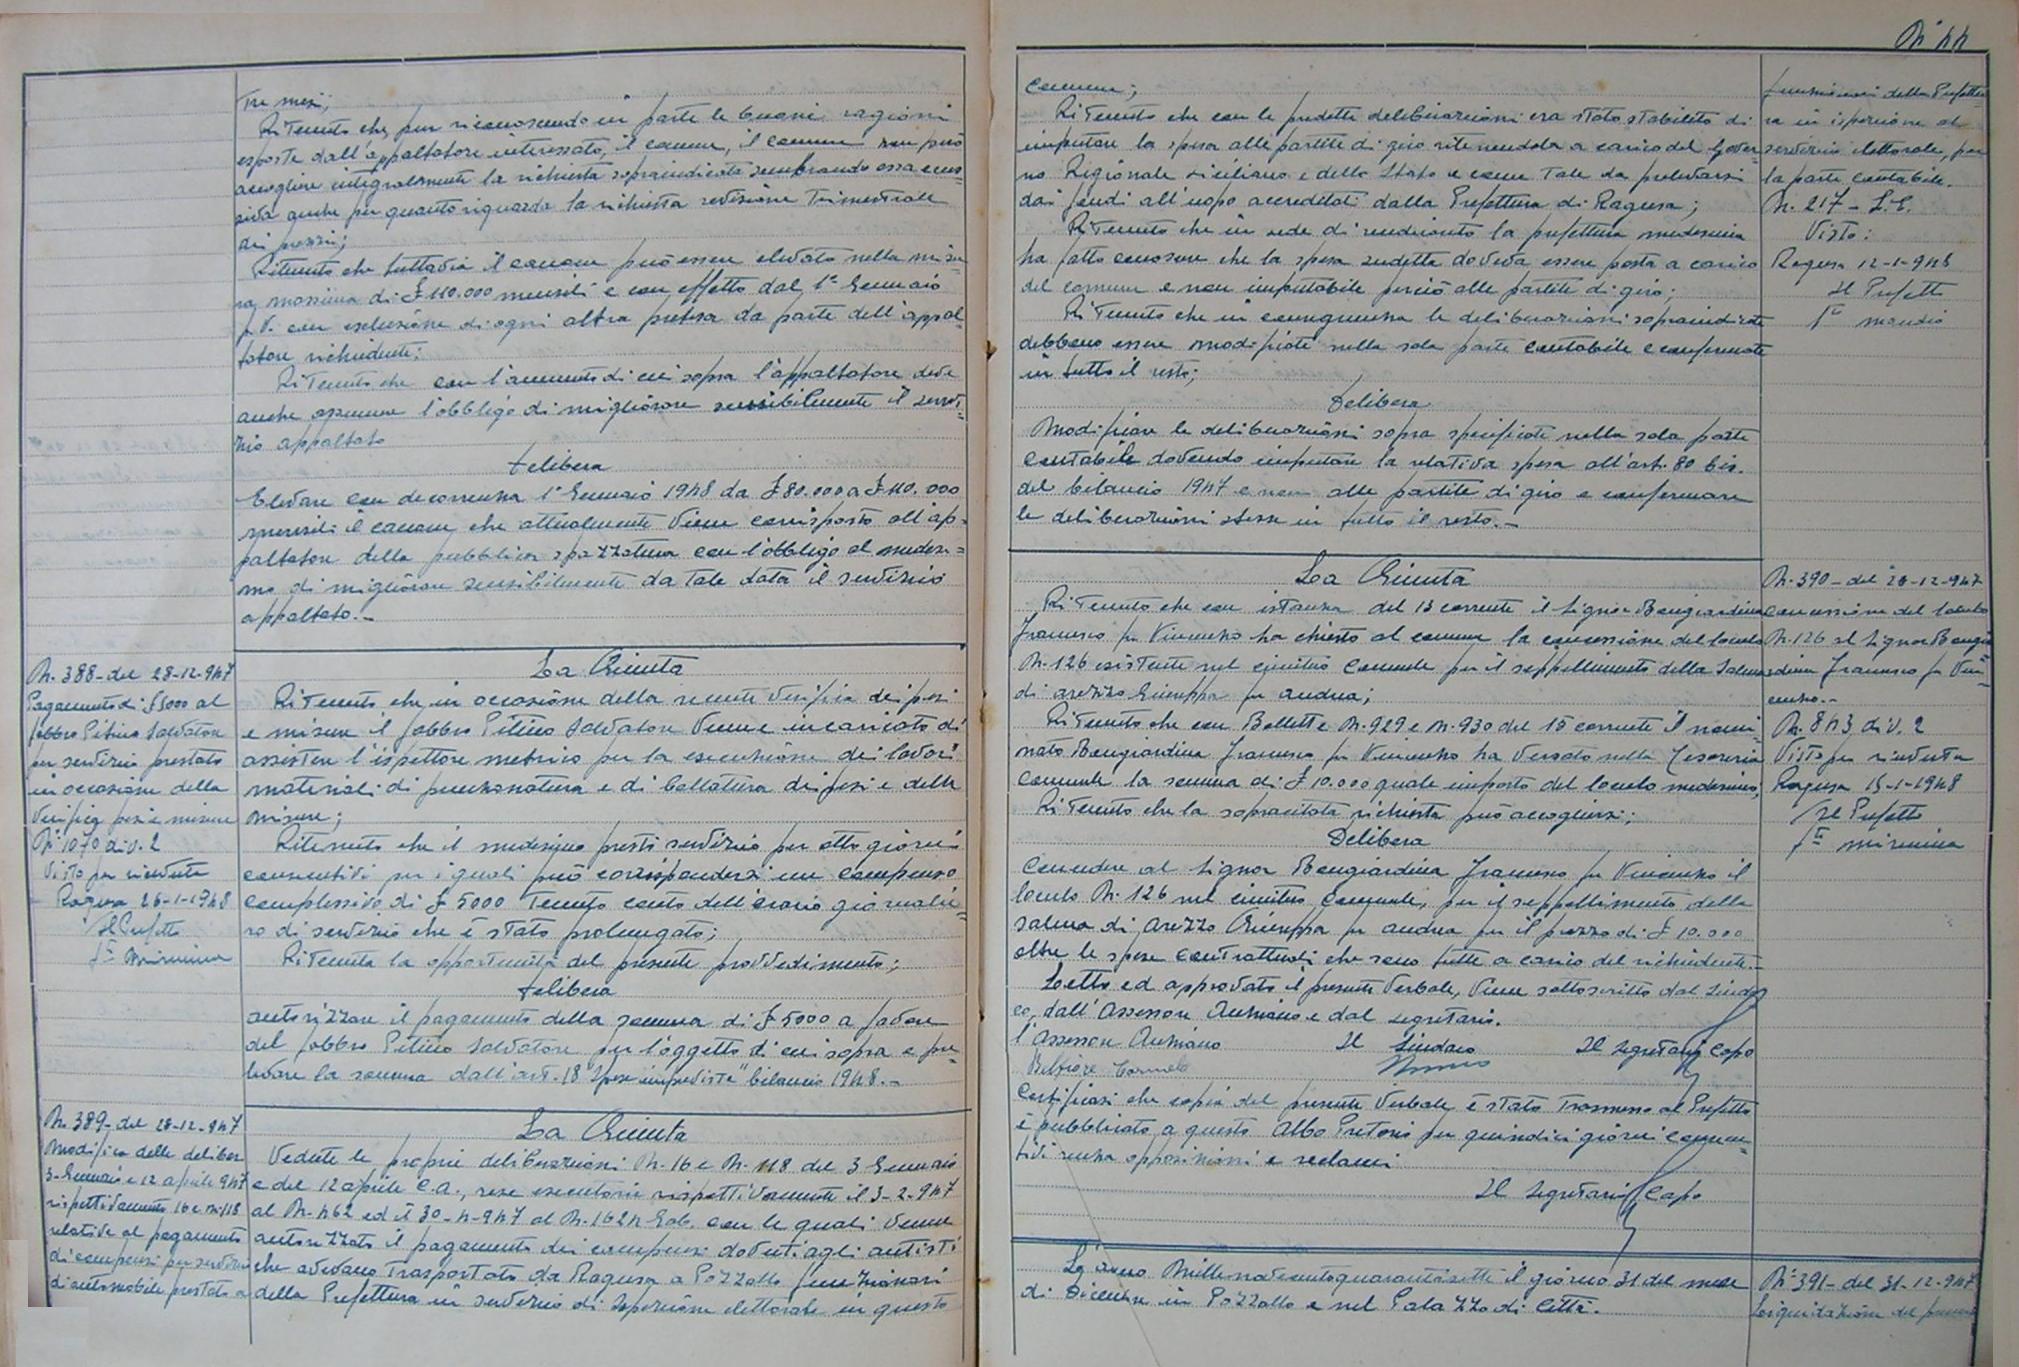 Tre mesi;
Ritenuto che, pur riconoscendo in parte le buone ragioni
esposte dall'appaltatore interessato, il comune, il comune non può
accogliere integralmente la richiesta sopraindicata sembrando essa ecces-
siva anche per quanto riguarda la richiesta revisione Trimestrale
dei prezzi;
Ritenuto che tuttavia il canone può essere elevato nella misu-
ra massima di £ 110.000 mensili e con effetto dal 1° Gennaio
p.v. con esclusione di ogni altra pretesa da parte dell'appal-
tatore richiedente;
Ritenuto che con l'aumento di cui sopra l'appaltatore deve
anche assumere l'obbligo di migliorare sensibilmente il servi-
zio appaltato
Delibera
Elevare con decorrenza 1° Gennaio 1948 da £ 80.000 a £ 110.000
mensili il canone che attualmente viene corrisposto all'ap-
paltatore della pubblica spazzatura con l'obbligo al medesi-
mo di migliorare sensibilmente da tale data il servizio
appaltato.-
N. 388 - del 28-12-947
Pagamento di £ 5000 al
fabbro Pitino Salvatore
per servizio prestato
in occasione della
verifica pesi e misure
N. 1070 div. 2
Visto per ricevuta
Ragusa 26-1-1948
Il Prefetto
La Giunta
Ritenuto che in occasione della recente verifica dei pesi
e misure il fabbro Pitino Salvatore venne incaricato di
assistere l'ispettore metrico per la esecuzione dei lavori
materiali di punzonatura e di bollatura dei pesi e delle
misure;
Ritenuto che il medesimo prestò servizio per otto giorni
consecutivi per i quali può corrispondersi un compenso
complessivo di £ 5000 tenuto conto dell'orario giornalie-
ro di servizio che è stato prolungato;
Ritenuta la opportunità del presente provvedimento;
Delibera
autorizzare il pagamento della somma di £ 5000 a favore
del fabbro Pitino Salvatore per l'oggetto di cui sopra e pre-
levare la somma dall'art. 18 "Spese impreviste" bilancio 1948.-
N. 389 - del 28-12-947
Modifica delle deliber
3 Gennaio e 12 aprile 947
rispettivamente 16 e n. 118
relative al pagamento
di compensi per servizio
di automobile prestato a
La Giunta
Vedute le proprie deliberazioni N. 16 e N. 118 del 3 Gennaio
e del 12 aprile c.a., rese esecutorie rispettivamente il 3-2-947
al N. 462 ed il 30-4-947 al N. 1624 Gab. con le quali venne
autorizzato il pagamento dei compensi dovuti agli autisti
che avevano trasportato da Ragusa a Pozzallo funzionari
della Prefettura in servizio di ispezione elettorale in questo
N° 44
comune;
Ritenuto che con le predette deliberazioni era stato stabilito di
imputare la spesa alle partite di giro ritenendola a carico del Gover-
no Regionale siciliano e dello Stato e come tale da prelevarsi
dai fondi all'uopo accreditati dalla Prefettura di Ragusa;
Ritenuto che in sede di rendiconto la prefettura medesima
ha fatto conoscere che la spesa sudetta doveva essere posta a carico
del comune e non imputabile perciò alle partite di giro;
Ritenuto che in conseguenza le deliberazioni sopraindicate
debbono essere modificate nella sola parte contabile e confermate
in tutto il resto;
Delibera
Modificare le deliberazioni sopra specificate nella sola parte
contabile dovendo imputare la relativa spesa all'art. 80 bis.
del bilancio 1947 e non alle partite di giro e confermare
le deliberazioni stesse in tutto il resto.-
funzionari della Prefettu-
ra in ispezione al
servizio elettorale, per
la parte contabile.
N. 217 - S.E.
Visto:
Ragusa 12-1-948
Il Prefetto
La Giunta
Ritenuto che con istanza del 13 corrente il Signor Bongiardina
Francesco fu Vincenzo ha chiesto al comune la concessione del loculo
N. 126 esistente nel cimitero comunale per il seppellimento della salma
di Arezzo Giuseppa fu Andrea;
Ritenuto che con Bollette N. 929 e N. 930 del 15 corrente il nomi-
nato Bongiardina Francesco fu Vincenzo ha versato nella Tesoreria
comunale la somma di £ 10.000 quale importo del loculo medesimo;
Ritenuto che la sopracitata richiesta può accogliersi;
Delibera
Concedere al Signor Bongiardina Francesco fu Vincenzo il
loculo N. 126 nel cimitero comunale, per il seppellimento della
salma di Arezzo Giuseppa fu Andrea per il prezzo di £ 10.000
oltre le spese contrattuali che sono tutte a carico del richiedente.-
Letto ed approvato il presente verbale, viene sottoscritto dal Sinda-
co, dall'Assessore Anziano e dal segretario.
L'Assessore Anziano Il Sindaco Il Segretario Capo
Belfiore Carmelo
Certificasi che copia del presente verbale è stata Trasmessa al Prefetto
è pubblicato a questo Albo Pretorio per quindici giorni consecu-
tivi senza opposizioni e reclami
Il Segretario Capo
N. 390 - del 28-12-947
Concessione del loculo
N. 126 al Signor Bongiar-
dina Francesco fu Vin-
cenzo.-
N. 843 div. 2
Visto per ricevuta
Ragusa 15-1-1948
Il Prefetto
L'anno Millenovecentoquarantasette il giorno 31 del mese
di Dicembre in Pozzallo e nel Palazzo di Città.
N° 391 - del 31-12-947
Liquidazione del